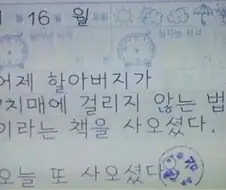 월 16 월
어제 할아버지가
치매에 걸리지 않는 법
이라는 책을 사오셨다.
오늘 또 사오셨다